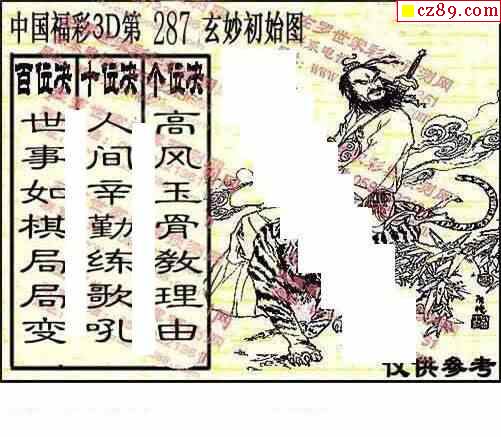 cz89.com
中国福彩3D第 287 玄妙初始图
百位决 十位决 个位决
世事如棋局局变
人间辛勤练歌吼
高风玉骨教理由
仅供参考